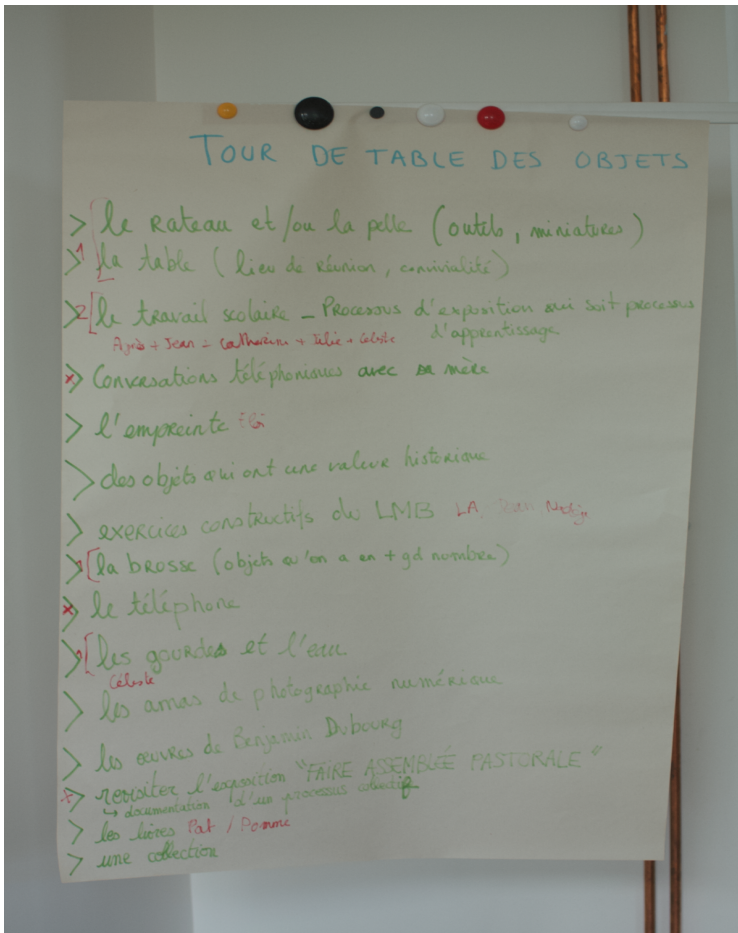 TOUR DE TABLE DES OBJETS
> le rateau et/ou la pelle (outils, miniatures)
1 > la table (lieu de réunion, convivialité)
2 > le travail scolaire - Processus d'exposition qui soit processus
d'apprentissage
+ Jean + Catherine + Julie + Céleste
x > Conversations téléphoniques avec sa mère
> l'empreinte
> des objets qui ont une valeur historique
> exercices constructifs du LMB LA
1 > la brosse (objets qu'on a en + gd nombre)
x > le téléphone
> les gourdes et l'eau
Céleste
> les amas de photographie numérique
> les œuvres de Benjamin Dubourg
x > revisiter l'exposition "FAIRE ASSEMBLÉE PASTORALE"
↳ documentation d'un processus collectif
> les livres Pat / Pomme
> une collection